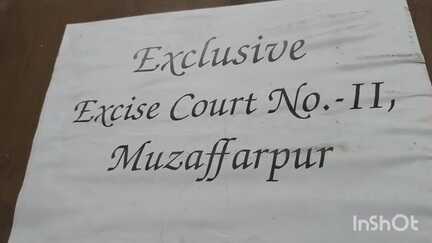 Exclusive
Excise Court No.-II,
Muzaffarpur
InShOt